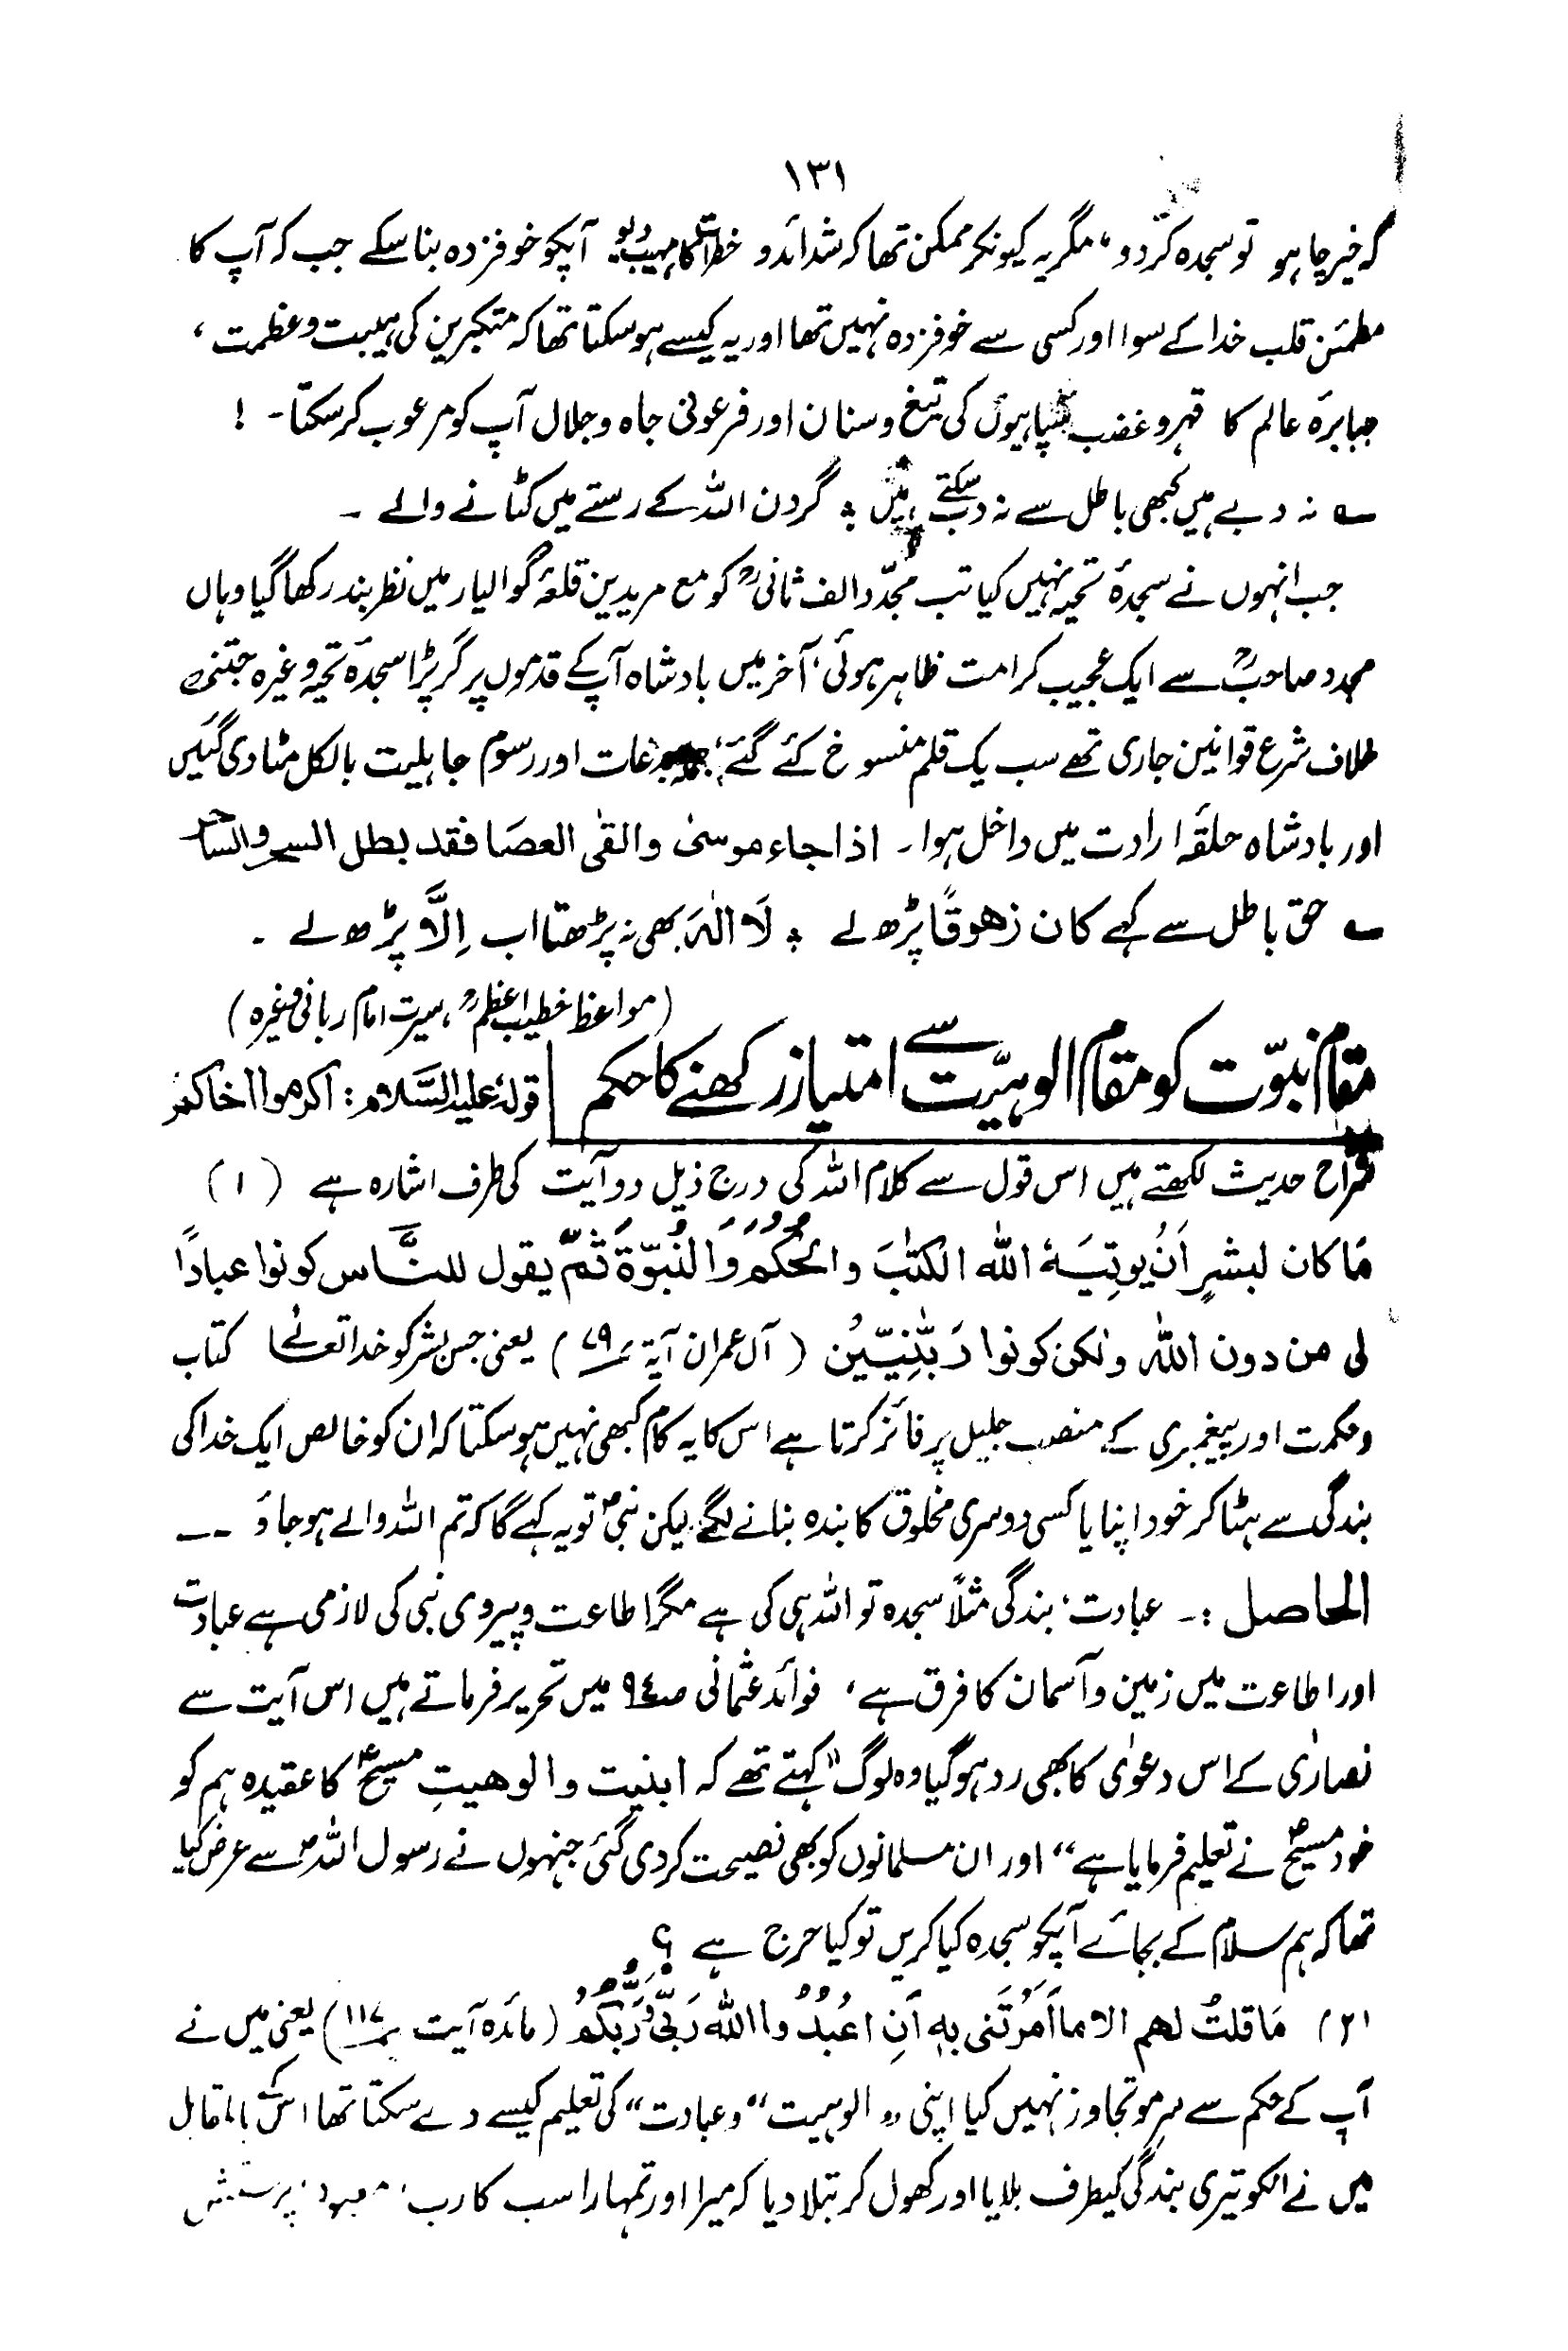 ۱۳۱
کہ خیر چاہو تو سجدہ کردو، مگر یہ کیونکر ممکن تھا کہ شدائد و خطرات کا مہیب دیو آپکو خوفزدہ بنا سکے جب کہ آپ کا
مطمئن قلب خدا کے سوا اور کسی سے خوفزدہ نہیں تھا اور یہ کیسے ہو سکتا تھا کہ متکبرین کی ہیبت و عظمت ،
جبابرۂ عالم کا قہر و غضب سپاہیوں کی تیغ و سنان اور فرعونی جاہ و جلال آپ کو مرعوب کر سکتا ۔ !
؎ نہ دبے ہیں کبھی باطل سے نہ دب سکتے ہیں ؛ گردن اللہ کے رستے میں کٹانے والے ۔
جب انہوں نے سجدۂ تحیہ نہیں کیا تب مجدّد الف ثانیؒ کو مع مریدین قلعۂ گوالیار میں نظر بند رکھا گیا وہاں
مجدد صاحبؒ سے ایک عجیب کرامت ظاہر ہوئی، آخر میں بادشاہ آپ کے قدموں پر گر پڑا سجدۂ تحیہ وغیرہ جتنے
خلاف شرع قوانین جاری تھے سب یک قلم منسوخ کئے گئے، بدعات اور رسوم جاہلیت بالکل مٹا دی گئیں
اور بادشاہ حلقۂ ارادت میں داخل ہوا ۔ اذا جاء موسیٰ والقی العصا فقد بطل السحر والساحر
؎ حق باطل سے کہے کان زھوقًا پڑھ لے ؛ لَا الٰہَ بھی نہ پڑھتا اب اِلَّا پڑھ لے ۔
(مواعظ خطیب اعظمؒ ، سیرت امام ربانی وغیرہ)
مقام نبوّت کو مقام الوہیّت سے امتیاز رکھنے کا حکم | قولہ علیہ السَّلام : اکرموا اخاکم
شراح حدیث لکھتے ہیں اس قول سے کلام اللہ کی درج ذیل دو آیت کی طرف اشارہ ہے (۱)
مَا کان لبشرٍ اَنْ یوتِیَہُ اللہ الکتٰبَ والحُکْمَ وَالنُّبُوَّۃَ ثُمَّ یقول للنَّاس کونوا عبادًا
لی من دون اللہ ولٰکن کونوا رَبّٰنِیّیْن (آل عمران آیۃ ۷۹) یعنی جس بشر کو خدا تعالےٰ کتاب
وحکمت اور پیغمبری کے منصب جلیل پر فائز کرتا ہے اس کا یہ کام کبھی نہیں ہو سکتا کہ ان کو خالص ایک خدا کی
بندگی سے ہٹا کر خود اپنا یا کسی دوسری مخلوق کا بندہ بنانے لگے لیکن نبیؐ تو یہ کہے گا کہ تم اللہ والے ہو جاؤ ۔۔
الحاصل :۔ عبادت، بندگی مثلًا سجدہ تو اللہ ہی کی ہے مگر اطاعت و پیروی نبی کی لازمی ہے عبادت
اور اطاعت میں زمین و آسمان کا فرق ہے، فوائد عثمانی صـ۹۴ میں تحریر فرماتے ہیں اس آیت سے
نصارٰی کے اس دعوٰی کا بھی رد ہو گیا وہ لوگ "کہتے تھے کہ ابنیت والوھیتِ مسیحؑ کا عقیدہ ہم کو
خود مسیحؑ نے تعلیم فرمایا ہے" اور ان مسلمانوں کو بھی نصیحت کر دی گئی جنہوں نے رسول اللہؐ سے عرض کیا
تھا کہ ہم سلام کے بجائے آپکو سجدہ کیا کریں تو کیا حرج ہے ؟
(۲) مَا قلتُ لھم الا ما اَمَرْتَنی بہٖ اَنِ اعْبُدُوا اللہَ رَبِّیْ وَرَبَّکُمْ (مائدہ آیت ۱۱۷) یعنی میں نے
آپ کے حکم سے سرِمو تجاوز نہیں کیا اپنی "الوہیت" و عبادت" کی تعلیم کیسے دے سکتا تھا اس کے بالمقابل
میں نے انکو تیری بندگی کیطرف بلایا اور کھول کر بتلا دیا کہ میرا اور تمہارا سب کا رب، معبود، پرستش